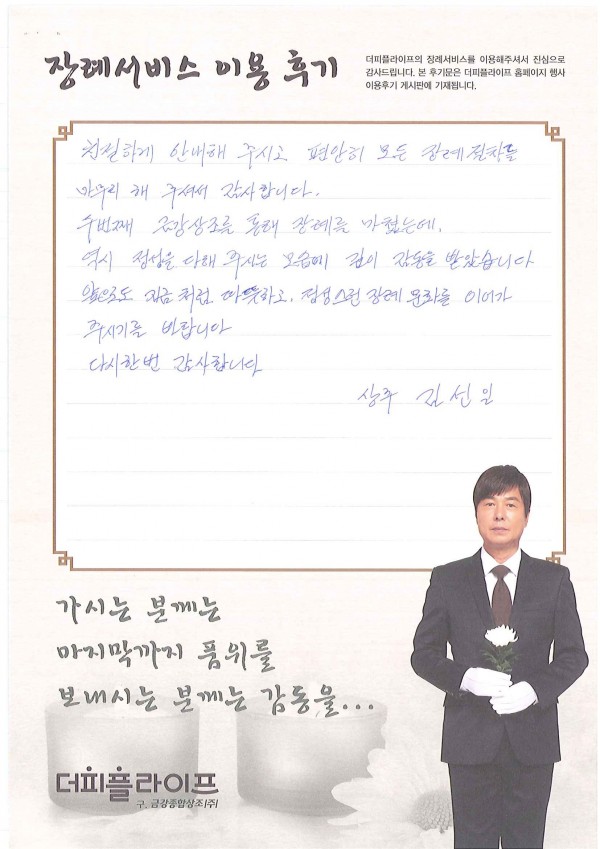 장례서비스 이용 후기
더피플라이프의 장례서비스를 이용해주셔서 진심으로
감사드립니다. 본 후기문은 더피플라이프 홈페이지 행사
이용후기 게시판에 기재됩니다.
친절하게 안내해 주시고 편안히 모든 장례절차를
마무리 해 주셔서 감사합니다.
두번째 금강상조를 통해 장례를 마쳤는데,
역시 정성을 다해 주시는 모습에 깊이 감동을 받았습니다
앞으로도 지금 처럼 따뜻하고, 정성스런 장례 문화를 이어가
주시기를 바랍니다
다시한번 감사합니다
상주 김선일
가시는 분께는
마지막까지 품위를
보내시는 분께는 감동을...
더피플라이프
구. 금강종합상조(주)